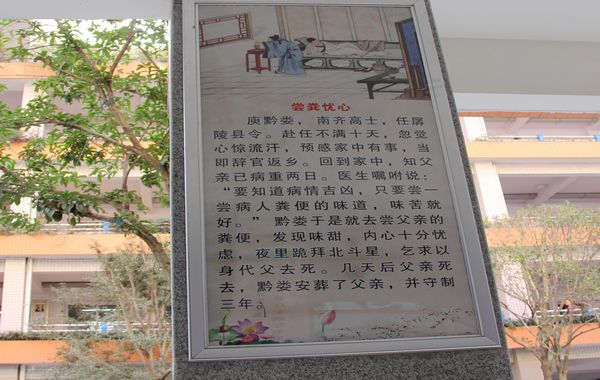 尝粪忧心
庾黔娄，南齐高士，任孱
陵县令。赴任不满十天，忽觉
心惊流汗，预感家中有事，当
即辞官返乡。回到家中，知父
亲已病重两日。医生嘱咐说：
“要知道病情吉凶，只要尝一
尝病人粪便的味道，味苦就
好。”黔娄于是就去尝父亲的
粪便，发现味甜，内心十分忧
虑，夜里跪拜北斗星，乞求以
身代父去死。几天后父亲死
去，黔娄安葬了父亲，并守制
三年。